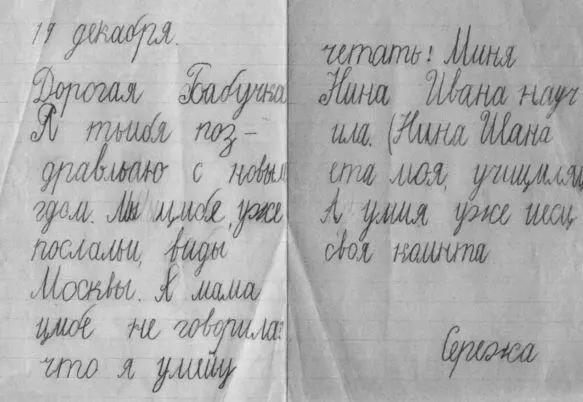 19 декабря.
Дорогая Бабучка
Я тьибя поз-
дравльаю с новым
гдом. Мы цибе уже
послальи, виды
Москвы. А мама
цибе не говорила:
что я умейу
четать! Миня
Нина Ивана науч
ила. (Нина Ивана
ета моя, учицилящ
А умия уже иесц
своя коинта
Сережа